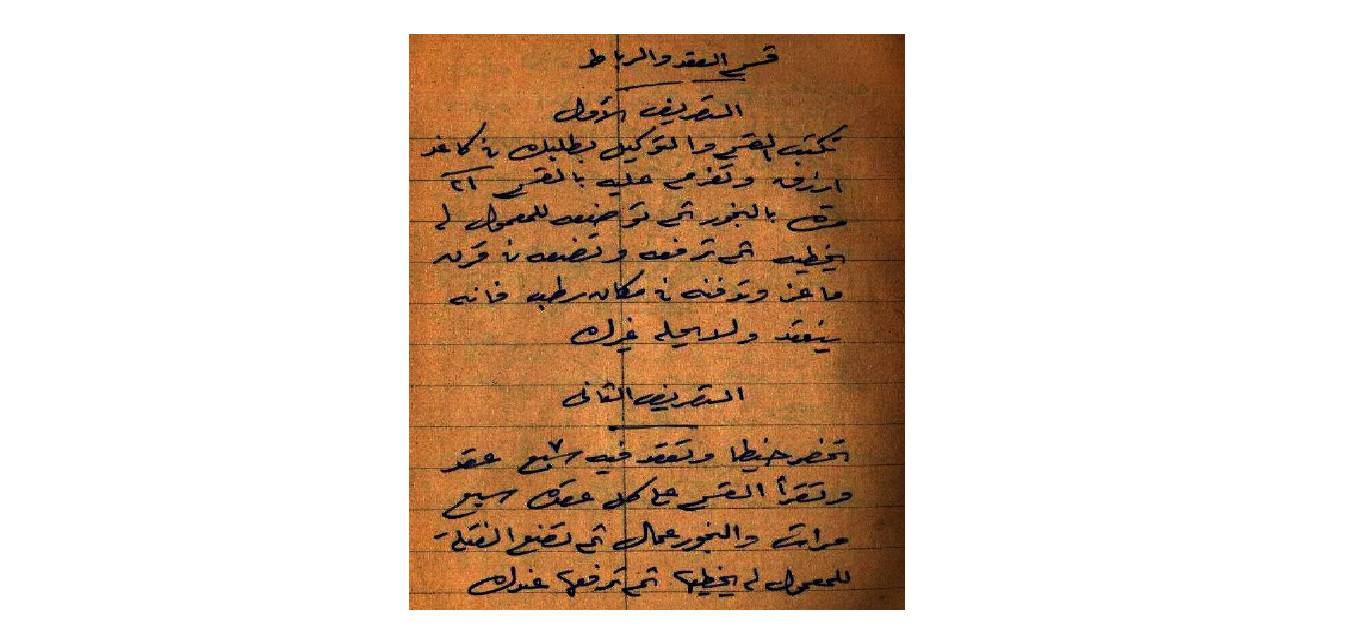 قسم العقد والرباط
التصريف الأول
تكتب القسم والتوكيل بطلبك في كاغد
ازرق وتعزم عليه بالقسم ٢١
مرة بالبخور ثم توضعه للمعمول له
يخطيه ثم ترفعه وتضعه في قرن
ماعز وتدفنه في مكان رطب فانه
ينعقد ولا يحله غيرك
التصريف الثاني
تحضر خيطا وتعقد فيه سبع ٧ عقد
وتقرأ القسم على كل عقدة سبع
مرات والبخور عمال ثم تضع الفتلة
للمعمول له يخطيها ثم ترفعها عندك